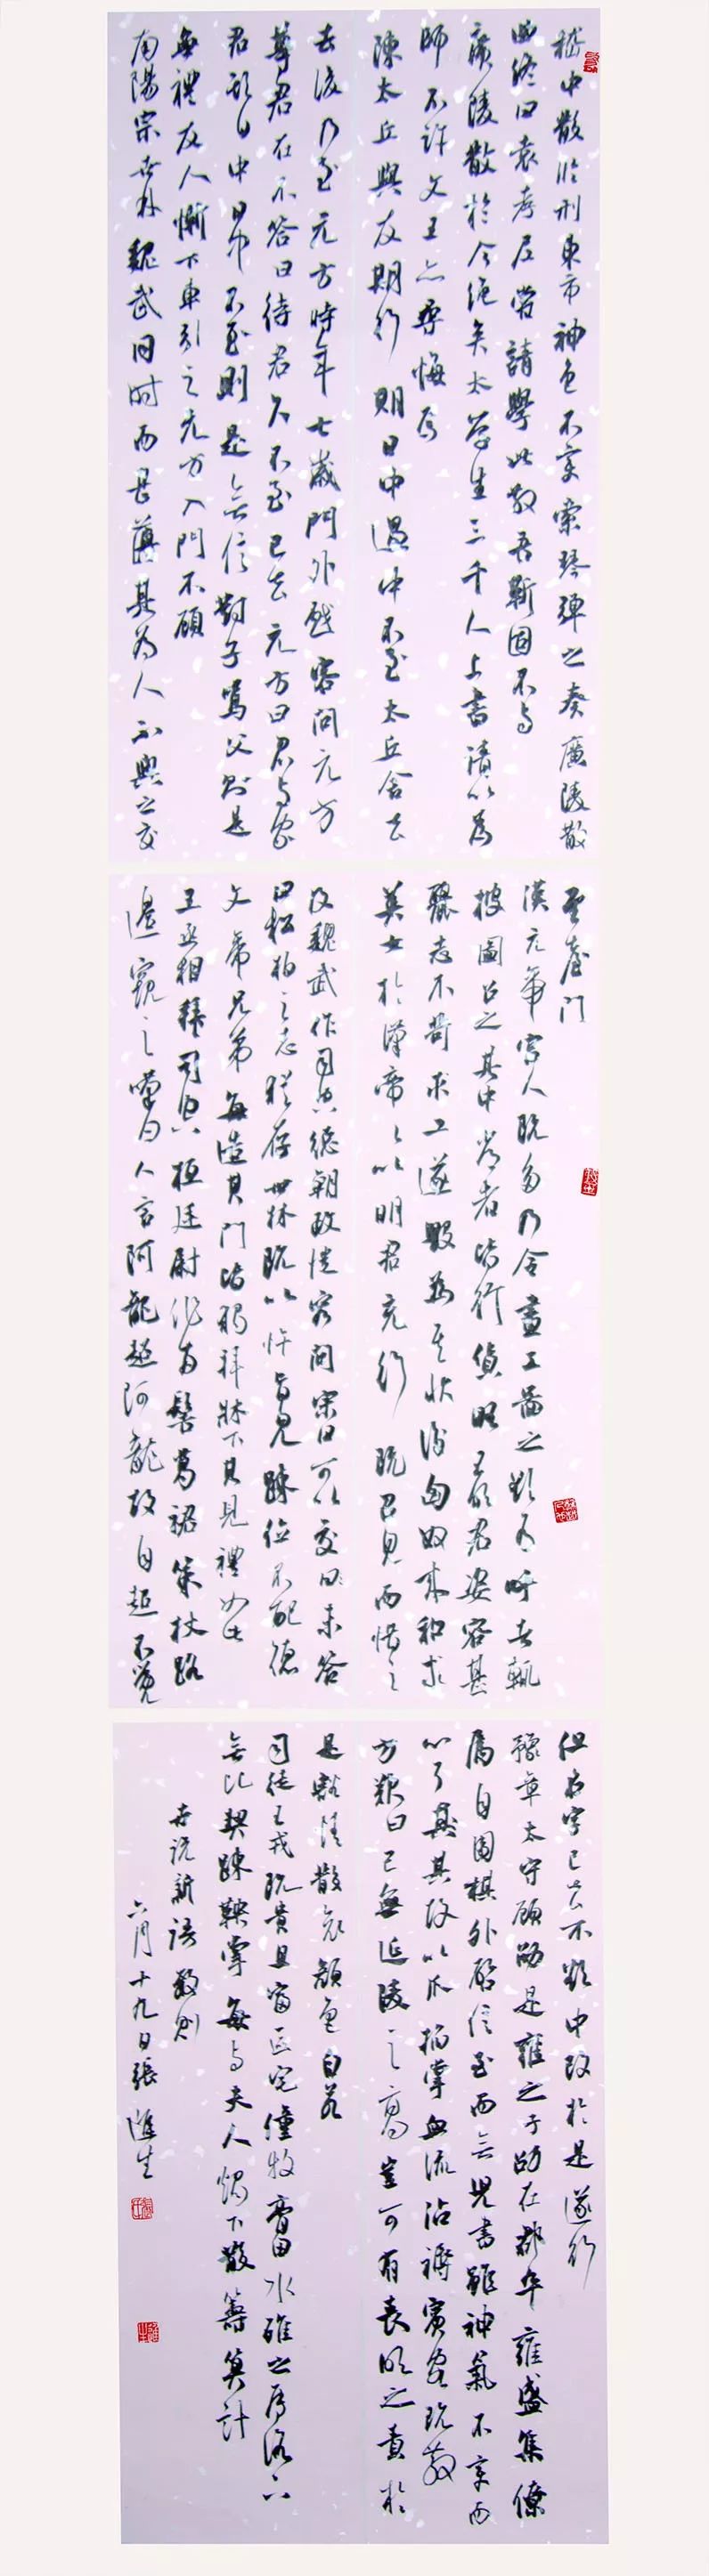 嵇中散臨刑東市神色不變索琴彈之奏廣陵散
曲終曰袁孝尼嘗請學此散吾靳固不與
廣陵散於今絕矣太學生三千人上書請以為
師不許文王亦尋悔焉
陳太丘與友期行期日中過中不至太丘舍去
去後乃至元方時年七歲門外戲客問元方
尊君在不答曰待君久不至已去元方曰君與家
君期日中日中不至則是無信對子罵父則是
無禮友人慚下車引之元方入門不顧
南陽宗世林魏武同時而甚薄其為人不與之交
及魏武作司空總朝政從容問宗曰可以交未答
曰松柏之志猶存世林既以忤旨見疎位不配德
文帝兄弟每造其門皆獨拜牀下其見禮如此
王丞相拜司空桓廷尉作兩髻葛裙策杖路
邊窺之嘆曰人言阿龍超阿龍故自超不覺
至臺門
漢元帝宮人既多乃令畫工圖之欲有呼者輒
披圖召之其中常者皆行貨賂王明君姿容甚
麗志不苟求工遂毀為其狀後匈奴來和求
美女於漢帝帝以明君充行既召見而惜之
但名字已去不欲中改於是遂行
豫章太守顧劭是雍之子劭在郡卒雍盛集僚
屬自圍棋外啟信至而無兒書雖神氣不變而
心了其故以爪掐掌血流沾褥賓客既散
方歎曰已無延陵之高豈可有喪明之責於
是豁情散哀顏色自若
司徒王戎既貴且富區宅僮牧膏田水碓之屬洛下
無比契疎鞅掌每與夫人燭下散籌算計
世說新語數則
六月十九日張進生